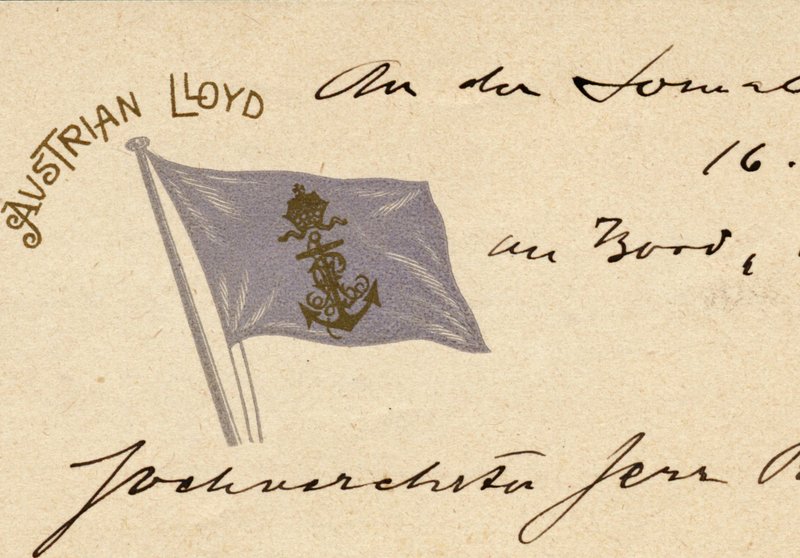 AUSTRIAN LLOYD
An der Somal
16.
an Bord,
Hochverehrter Herr